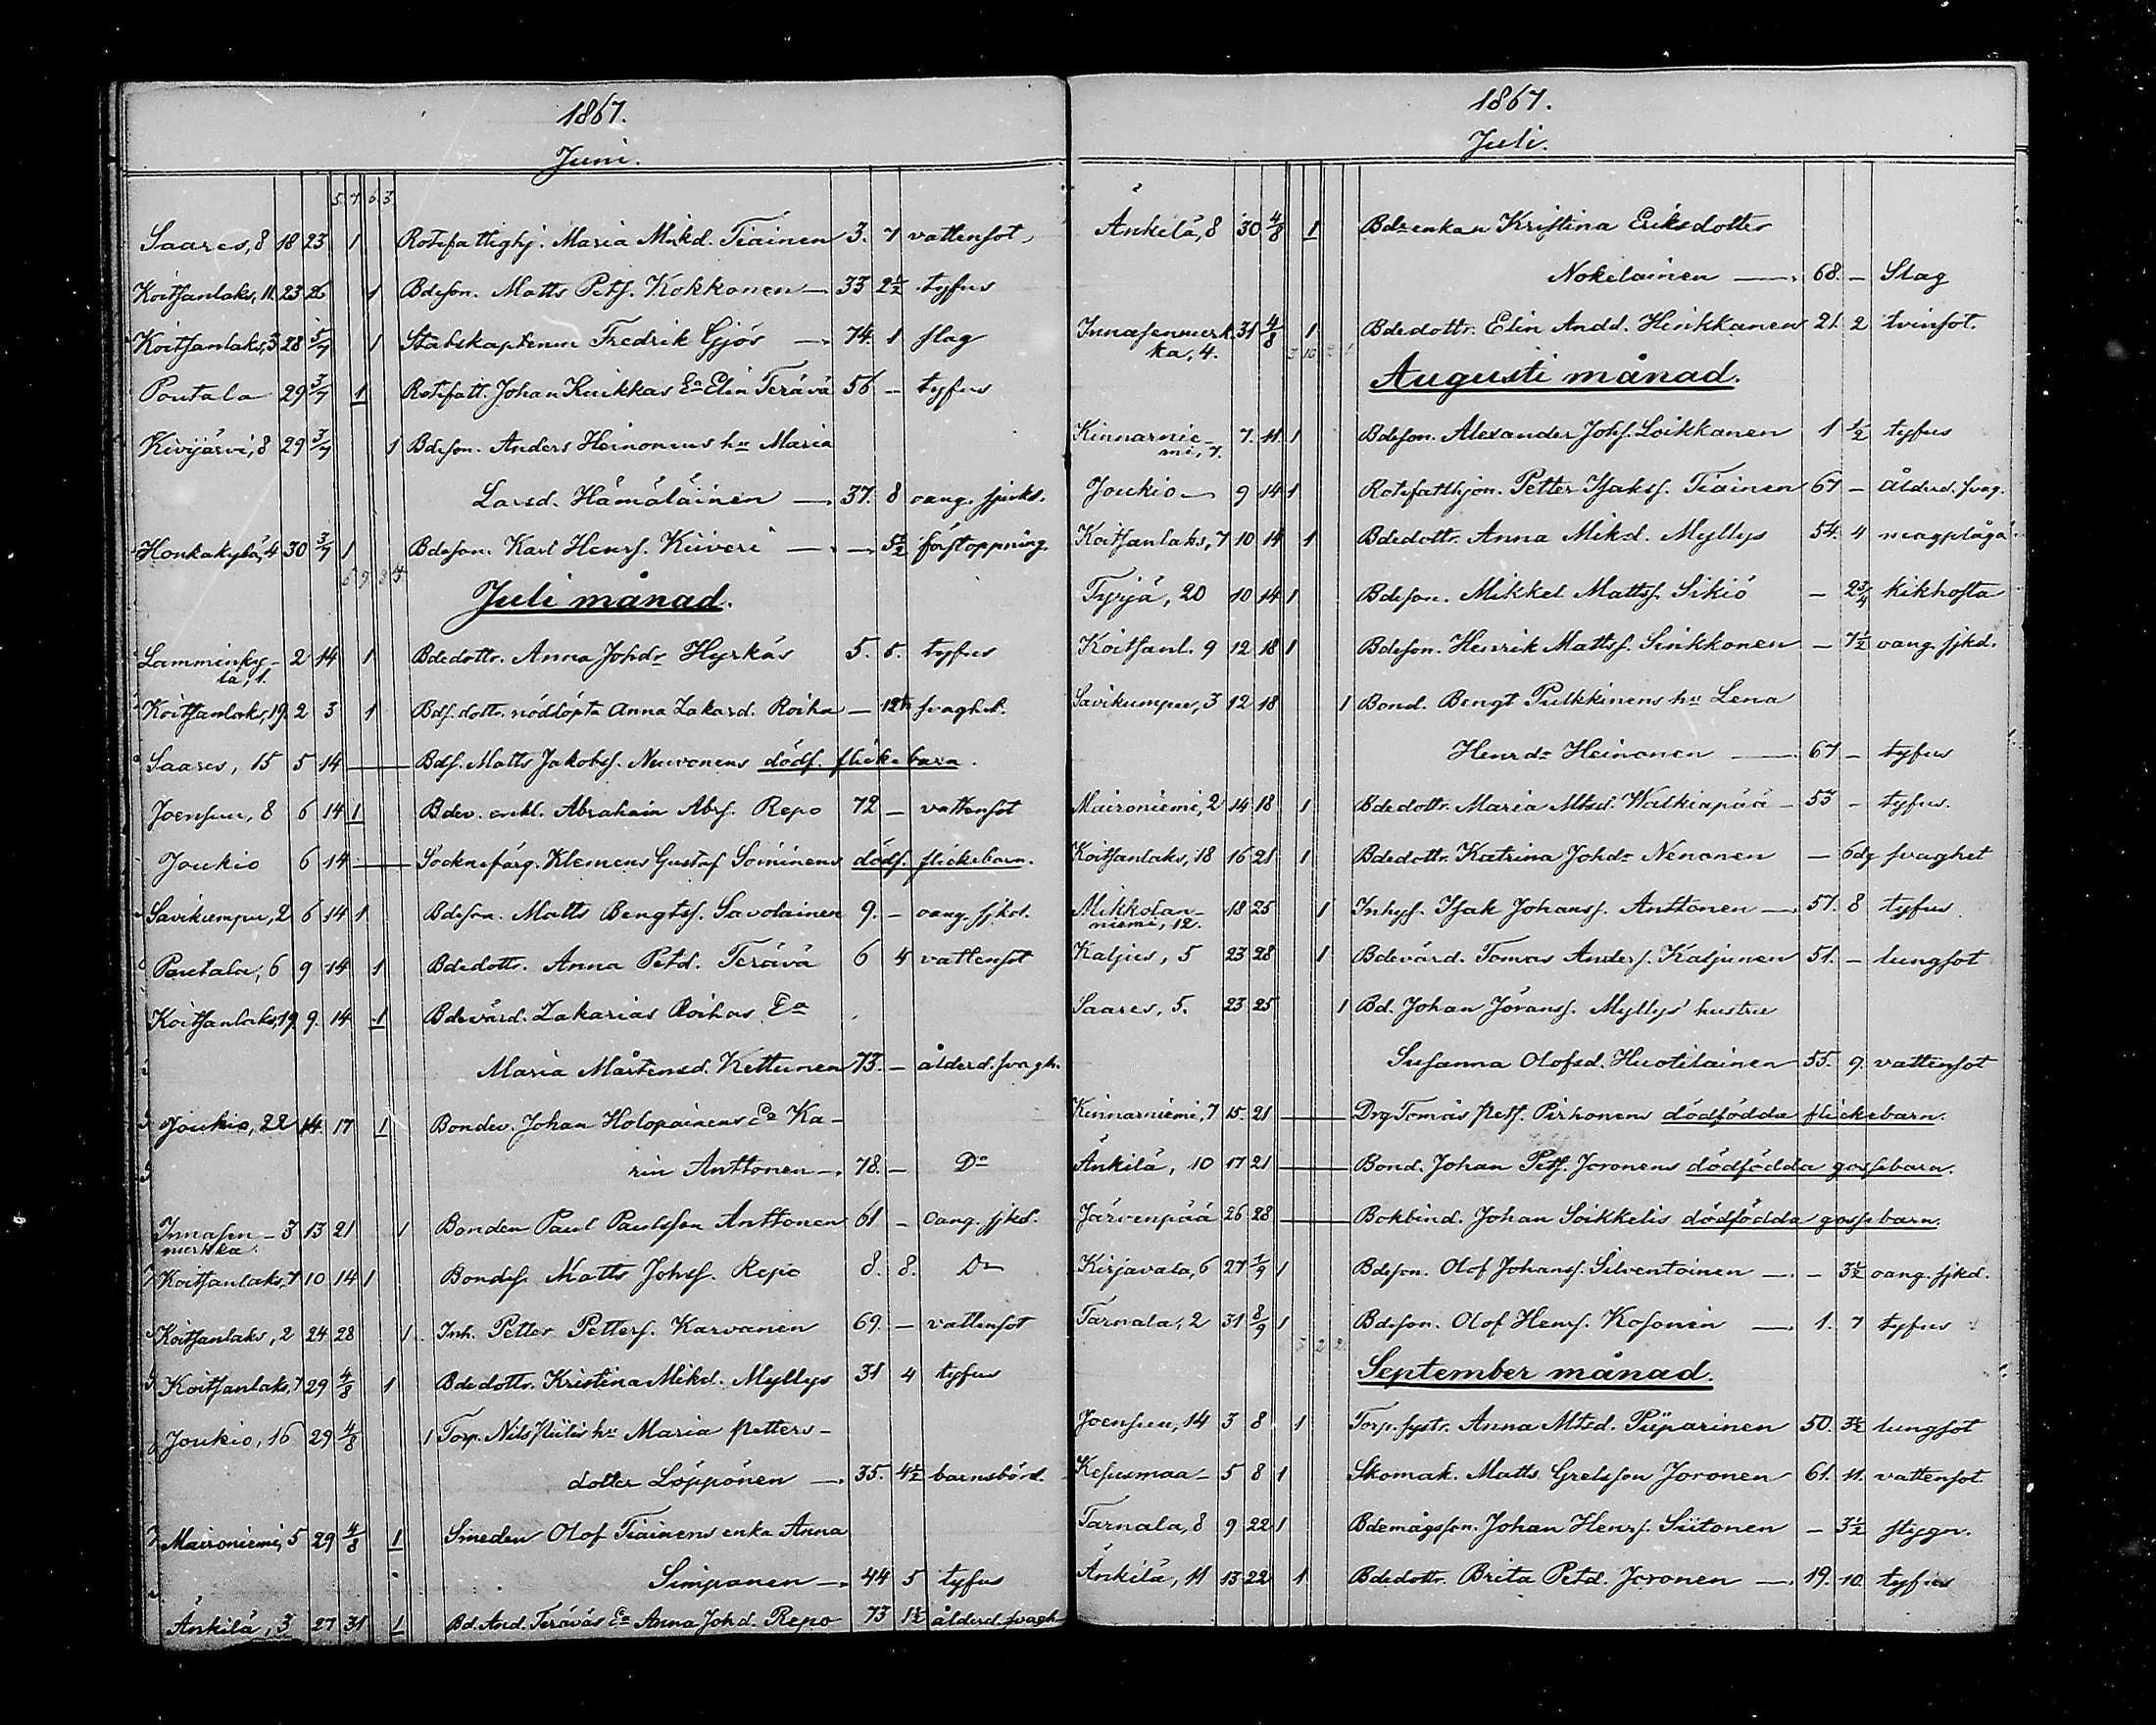 1867.
Juni.
5. 7. 6. 3.
Saares, 8 18 23 1 Rotefattighj. Maria Mikd. Tiainen 3. 7 vattensot
Koitsanlaks, 11. 23 26 1 Bdeson. Matts Pets. Kokkonen — 33 2 1/2 tyfus
Koitsanlaks, 3 28 5/7 1 Stabskaptenen Fredrik Gjös — 74. 1 slag
Poutala 29 3/7 1 Rotefatt. Johan Kuikkas Ea Elin Terävä 56 — tyfus
Kivijärvi, 8 29 3/7 1 Bdeson. Anders Heinonens hu Maria
Larsd. Hämäläinen — 37. 8 oang. sjukd.
Honkakylä, 4 30 3/7 1 Bdeson. Karl Henrs. Kiiveri — — 5 1/2 förstoppning.
Juli månad.
Lamminky- 2 14 1 Bdedottr. Anna Johdr Hyrkäs 5. 5. tyfus
lä, 1.
Koitsanlaks, 19. 2 3 1 Bds. dottr. nöddöpta Anna Zakard. Roiha — 12 svaghet.
Saares, 15 5 14 — Bds. Matts Jakobs. Neuvonens dödf. flickebarn.
Joensuu, 8 6 14 1 Bdev. enkl. Abraham Abrs. Repo 72 — vattensot
Joukio 6 14 — Socknefärg. Klemens Gustaf Soininens dödf. flickebarn.
Savikumpu, 2 6 14 1 Bdeson. Matts Bengtss. Savolainen 9. — oang. sjkd.
Pautala, 6 9 14 1 Bdedottr. Anna Petd. Terävä 6 4 vattensot
Koitsanlaks, 19 9. 14 1 Bdevärd. Zakarias Roihas Ea
Maria Mårtensd. Kettunen 73. — ålderd. svagh.
Joukio, 22 14. 17 1 Bondev. Johan Holopainens Ea Ka-
rin Anttonen — 78. — Do
Innasen- 3 13 21 1 Bonden Paul Paulsson Anttonen 61 — Oang. sjkd.
murkka.
Koitsanlaks, 7 10 14 1 Bonds. Matts Johss. Repo 8. 8. Do
Koitsanlaks, 2 24 28 1. Inh. Petter Petters. Karvanen 69. — vattensot
Koitsanlaks, 7 29 4/8 1 Bdedottr. Kristina Mikd. Myllys 31 4 tyfus
Joukio, 16 29 4/8 1 Torp. Nils Piilis hu Maria Petters-
dotter Löppönen — 35. 4 1/2 barnsbörd.
Maironiemi, 5 29 4/8 1 Smeden Olof Tiainens enka Anna
Simpanen — 44 5 tyfus
Änkilä, 3 27 31 1 Bd. And. Teräväs Ea Anna Johd. Repo 73 1 1/2 ålderd. svagh.
1867.
Juli.
Änkilä, 8 30 4/8 1 Bdrenkan Kristina Eriksdotter
Nokelainen — 68. — Slag
Innasenmurk- 31 4/8 1 Bdedottr. Elin Andd. Hinkkanen 21. 2 tvinsot.
ka, 4.
Augusti månad.
Kinnarnie- 7. 11. 1 Bdeson. Alexander Johs. Loikkanen 1 1/2 tyfus
mi, 7.
Joukio — 9 14 1 Rotefatthjon. Petter Isaks. Tiainen 67 — Ålderd. svag.
Koitsanlaks, 7 10 14 1 Bdedottr. Anna Mikd. Myllys 54. 4 magplåga.
Tyrjä, 20 10 14 1 Bdeson. Mikkel Mattss. Sikiö — 2 3/4 kikhosta
Koitsanl. 9 12 18 1 Bdeson. Henrik Mattss. Sinkkonen — 7 1/2 oang. sjkd.
Savikumpu, 3 12 18 1 Bond. Bengt Pulkkinens hu Lena
Henrdr Heinonen — 67 — tyfus
Maironiemi, 2 14 18 1 Bdedottr. Maria Mtsd. Walkiapää — 53 — tyfus.
Koitsanlaks, 18 16 21 1 Bdedottr. Katrina Johdr Nenonen — 6dg svaghet
Mikkolan- 18 25 1 Inhys. Isak Johanss. Anttonen — 57. 8 tyfus
niemi, 12.
Kaljus, 5 23 28 1 Bdevärd. Tomas Anders. Kaljunen 51. — lungsot
Saares, 5. 23 25 1 Bd. Johan Jöranss. Myllys' hustru
Susanna Olofsd. Huotilainen 55. 9. vattensot
Kinnarniemi, 7 15. 21 — Drg Tomas Petss. Pirhonens dödfödda flickebarn.
Änkilä, 10 17 21 — Bond. Johan Petss. Joronens dödfödda gossebarn.
Järvenpää 26 28 — Bokbind. Johan Soikkelis dödfödda gossebarn.
Kirjavala, 6 27 1/9 1 Bdeson. Olof Johanss. Silventoinen — — 3 1/2 oang. sjkd.
Tarnala, 2 31 8/9 1 Bdeson. Olof Henrs. Kosonen — 1. 7 tyfus
September månad.
Joensuu, 14 3 8 1 Torp. systr. Anna Mtsd. Piiparinen 50. 3 1/2 lungsot
Kesusmaa — 5 8 1 Skomak. Matts Grelsson Joronen 61. 11. vattensot.
Tarnala, 8 9 22 1 Bdemågsson. Johan Henrs. Siitonen — 3 1/2 stygn.
Änkilä, 11 13 22 1 Bdedottr. Brita Petd. Joronen — 19. 10. tyfus